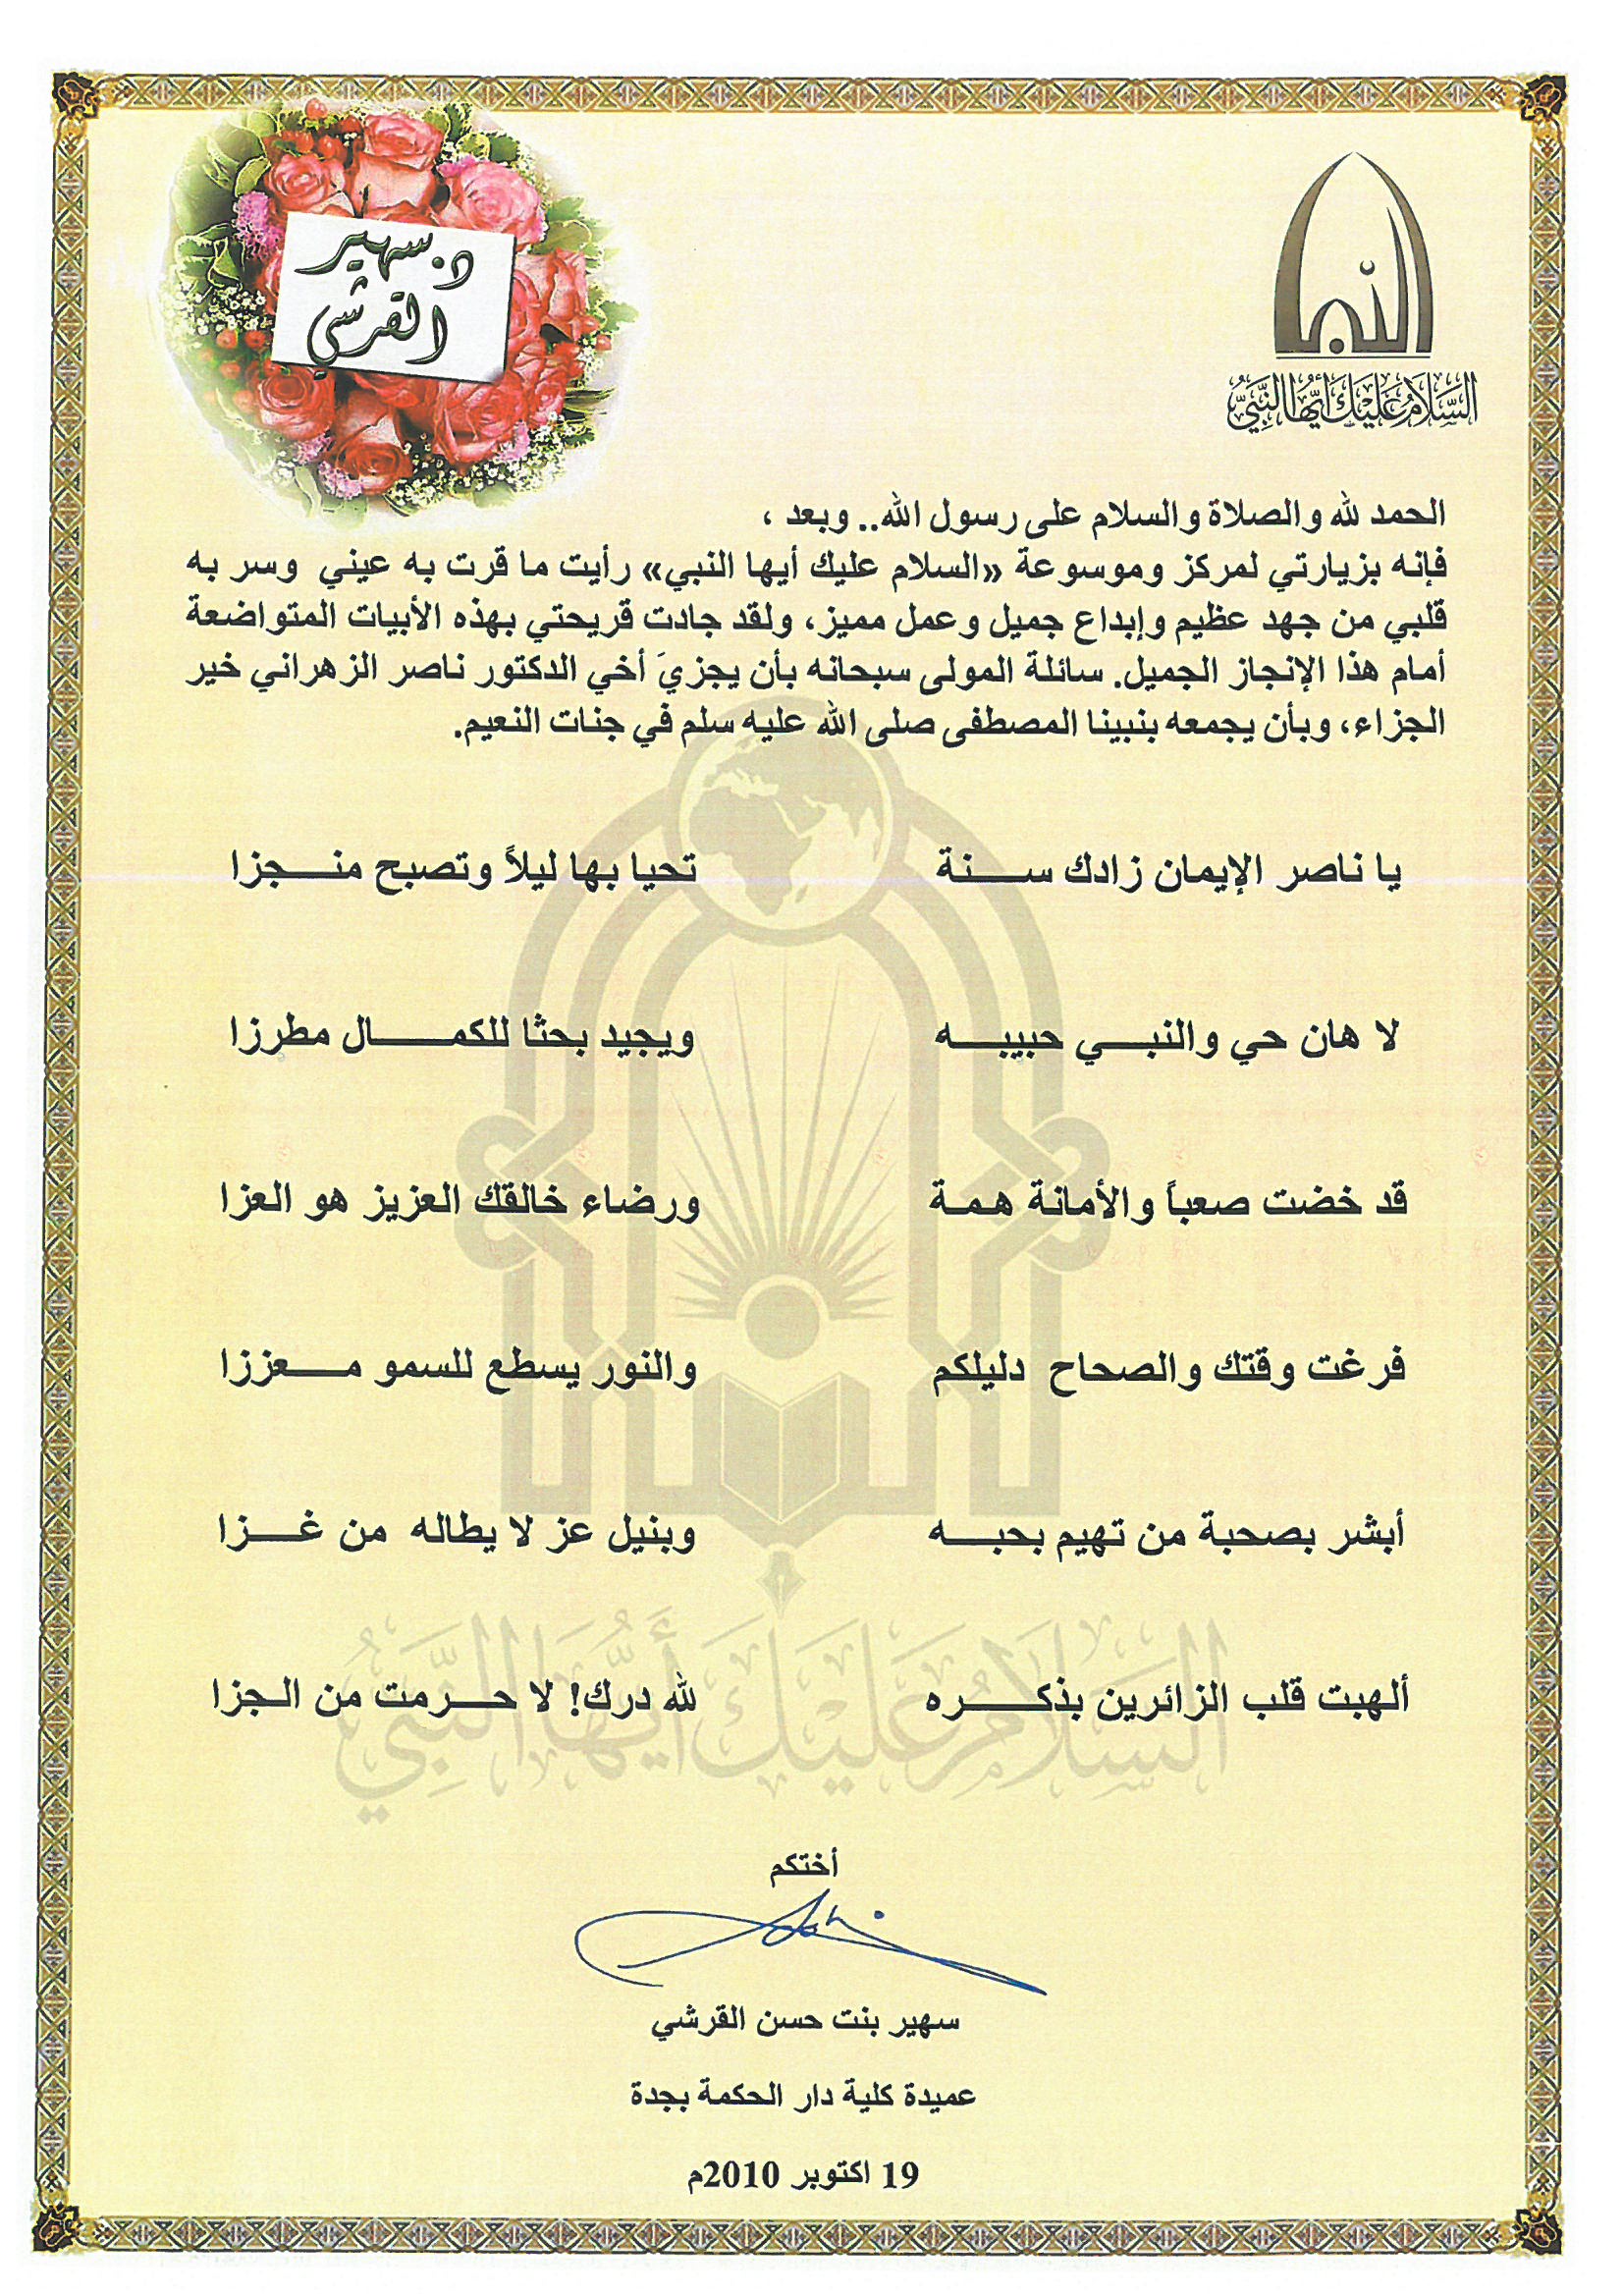 د. سهير
القرشي
السَّلَامُ عَلَيْكَ أَيُّهَا النَّبِيُّ
الحمد لله والصلاة والسلام على رسول الله.. وبعد ،
فإنه بزيارتي لمركز وموسوعة «السلام عليك أيها النبي» رأيت ما قرت به عيني وسر به
قلبي من جهد عظيم وإبداع جميل وعمل مميز، ولقد جادت قريحتي بهذه الأبيات المتواضعة
أمام هذا الإنجاز الجميل. سائلة المولى سبحانه بأن يجزيَ أخي الدكتور ناصر الزهراني خير
الجزاء، وبأن يجمعه بنبينا المصطفى صلى الله عليه سلم في جنات النعيم.
يا ناصر الإيمان زادك سنة تحيا بها ليلاً وتصبح منجزا
لا هان حي والنبي حبيبه ويجيد بحثا للكمال مطرزا
قد خضت صعباً والأمانة همة ورضاء خالقك العزيز هو العزا
فرغت وقتك والصحاح دليلكم والنور يسطع للسمو معززا
أبشر بصحبة من تهيم بحبه وبنيل عز لا يطاله من غزا
ألهبت قلب الزائرين بذكره لله درك! لا حرمت من الجزا
السَّلَامُ عَلَيْكَ أَيُّهَا النَّبِيُّ
أختكم
سهير بنت حسن القرشي
عميدة كلية دار الحكمة بجدة
19 اكتوبر 2010م